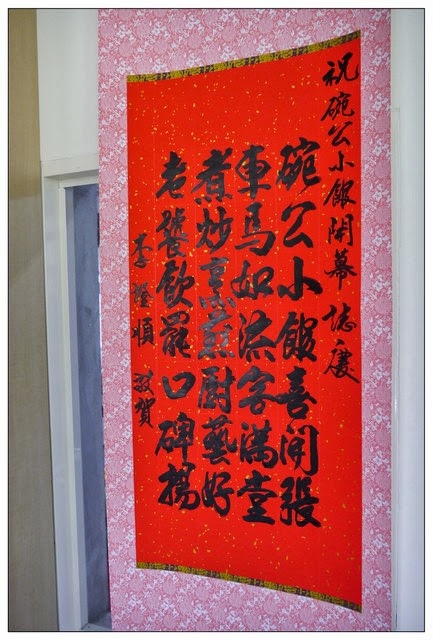 祝碗公小館開幕 誌慶
碗公小館喜開張
車馬如流客滿堂
煮炒烹煎廚藝好
老饕飲罷口碑揚
李隆順 敬賀